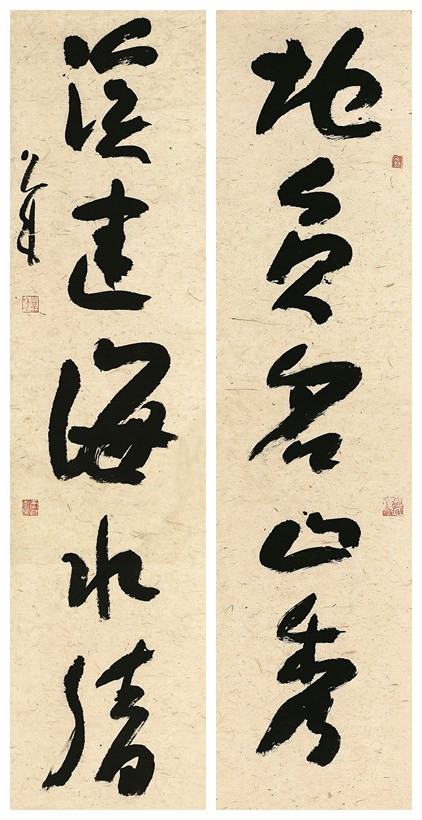 地負名山秀
溪連海水清